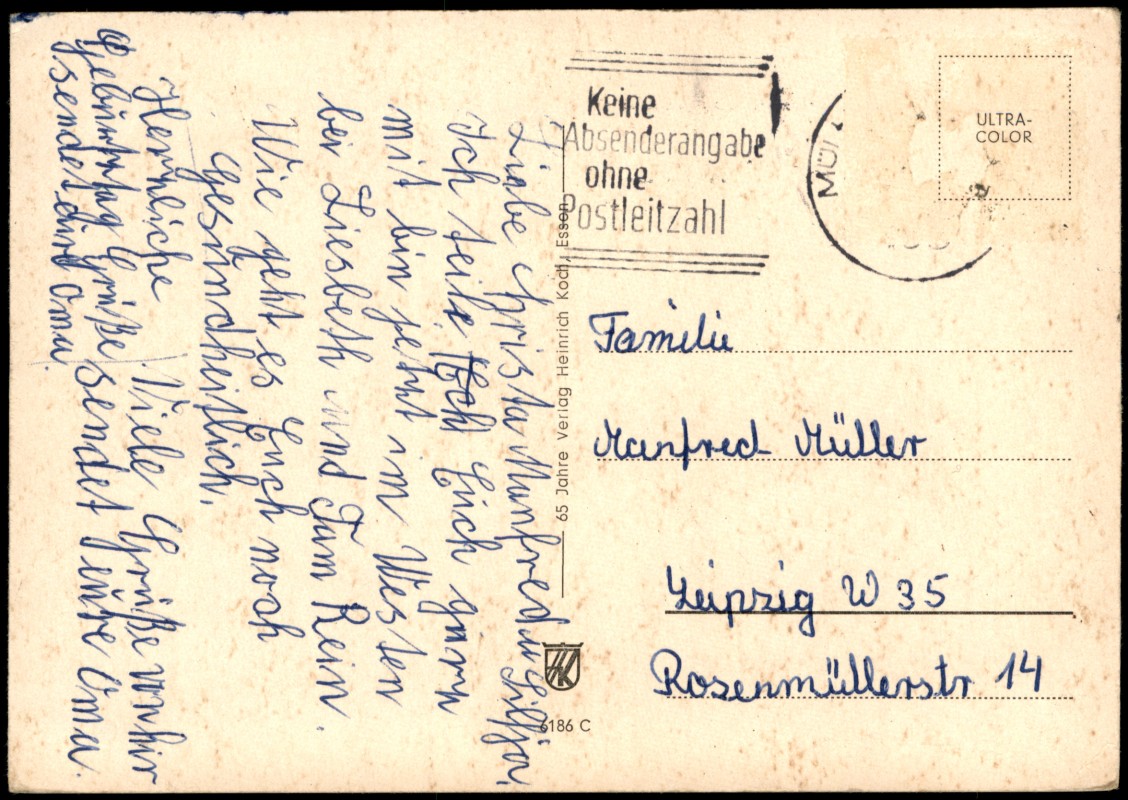 Liebe Christa Manfred u Silja
Ich teile Euch gern
mit bin jetzt im Westen
bei Liesbeth und Fam Rein.
Wie geht es Euch noch
Gesundheitlich.
Herzliche Viele Grüße von hir
Geburtstag Grüße sendet Oma.
sendet Oma
65 Jahre Verlag Heinrich Koch, Essen
HK
6186 C
Keine
Absenderangabe
ohne
Postleitzahl
MÜ
ULTRA-
COLOR
Familie
Manfred Müller
Leipzig W 35
Rosenmüllerstr 14